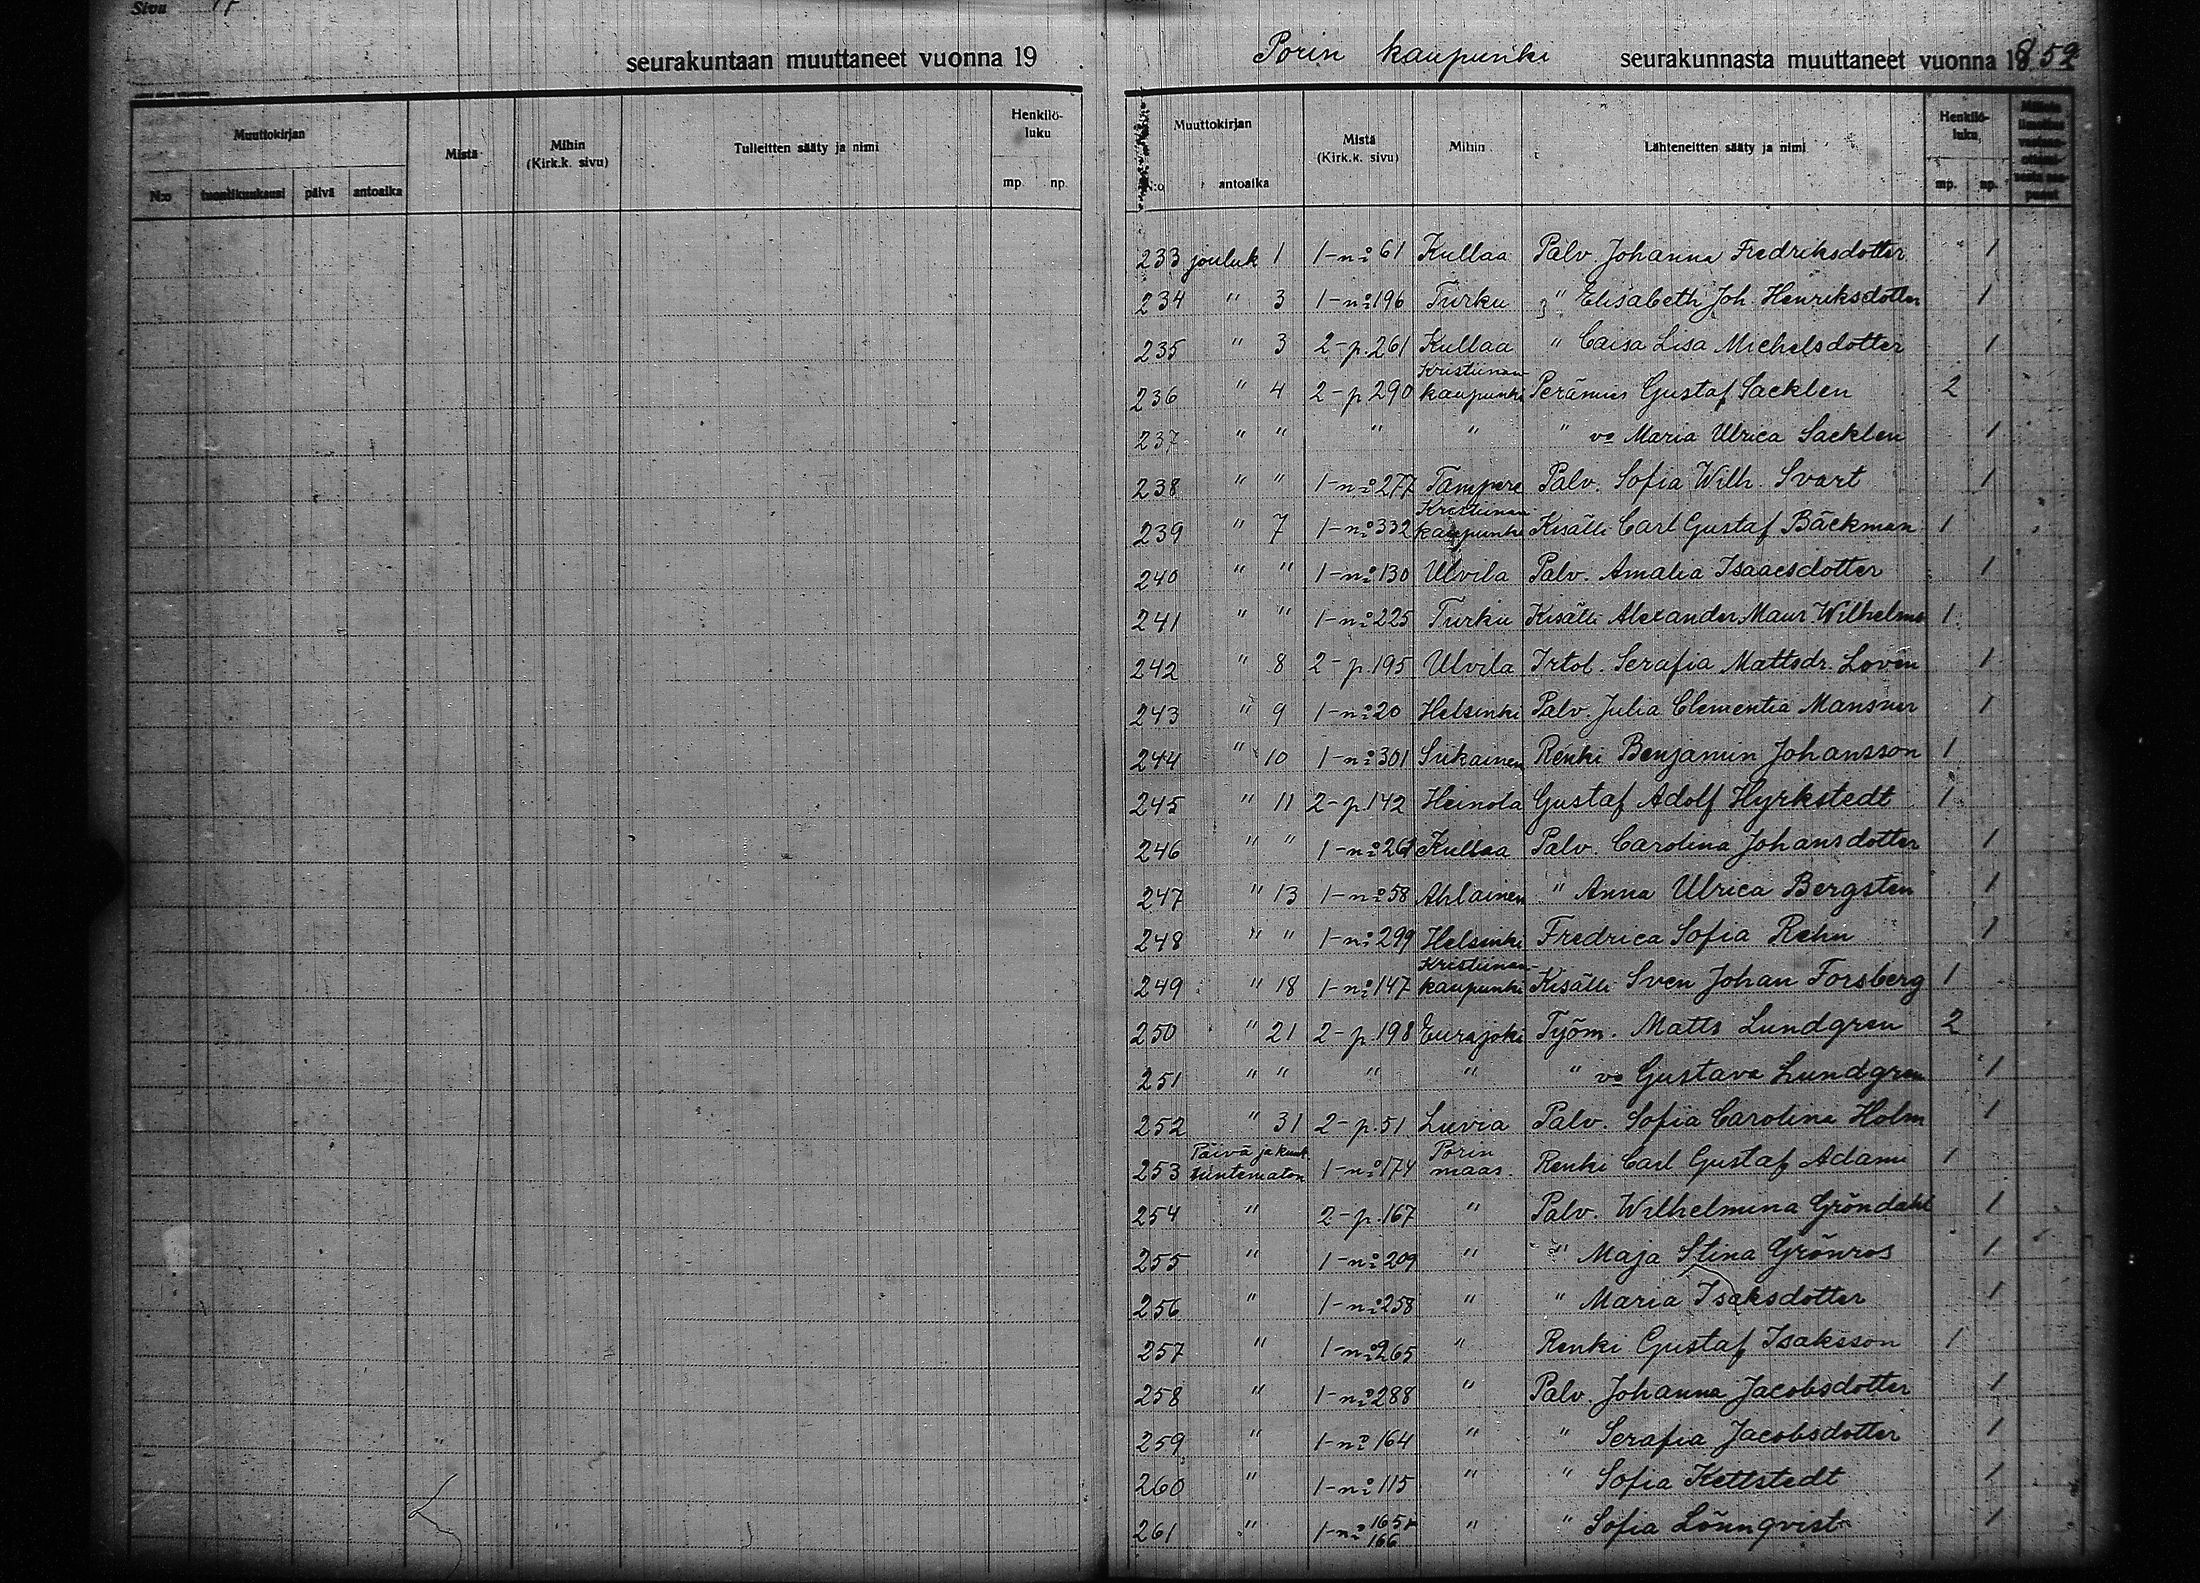 Sivu
seurakuntaan muuttaneet vuonna 19
Muuttokirjan
Mistä
Mihin
(Kirk.k. sivu)
Tulleitten sääty ja nimi
Henkilö-
luku
N:o
päivä
antoaika
mp.
np.
Porin kaupunki seurakunnasta muuttaneet vuonna 1859
Muuttokirjan
Mistä
(Kirk.k. sivu)
Mihin
Lähteneitten sääty ja nimi
Henkilö-
luku
N:o
antoaika
mp.
np.
233 jouluk 1 1-n:o 61 Kullaa Palv. Johanna Fredriksdotter 1
234 " 3 1-n:o 196 Turku " Elisabeth Joh. Henriksdotter 1
235 " 3 2-p. 261 Kullaa " Caisa Lisa Michelsdotter 1
236 " 4 2-p 290 Kristiinan-kaupunki Perämies Gustaf Sacklen 2
237 " " " " " vo Maria Ulrica Sacklen 1
238 " " 1-n:o 277 Tampere Palv. Sofia Wilh. Svart 1
239 " 7 1-n:o 332 Kristiinan-kaupunki Kisälli Carl Gustaf Bäckman 1
240 " " 1-n:o 130 Ulvila Palv. Amalia Isaacsdotter 1
241 " " 1-n:o 225 Turku Kisälli Alexander Maur. Wilhelms 1
242 " 8 2-p. 195 Ulvila Irtol. Serafia Mattsdr. Loven 1
243 " 9 1-n:o 20 Helsinki Palv. Julia Clementia Mansner 1
244 " 10 1-n:o 301 Siikainen Renki Benjamin Johansson 1
245 " 11 2-p. 142 Heinola Gustaf Adolf Hyrkstedt 1
246 " " 1-n:o 261 Kullaa Palv. Carolina Johansdotter 1
247 " 13 1-n:o 58 Ahlainen " Anna Ulrica Bergsten 1
248 " " 1-n:o 299 Helsinki Fredrica Sofia Rehn 1
249 " 18 1-n:o 147 Kristiinan-kaupunki Kisälli Sven Johan Forsberg 1
250 " 21 2-p. 198 Eurajoki Työm. Matts Lundgren 2
251 " " " " " vo Gustava Lundgren 1
252 " 31 2-p. 51 Luvia Palv. Sofia Carolina Holm 1
253 Päivä ja kuuk tuntematon 1-n:o 174 Porin maas. Renki Carl Gustaf Adami 1
254 " 2-p. 167 " Palv. Wilhelmina Gröndahl 1
255 " 1-n:o 209 " " Maja Stina Grönros 1
256 " 1-n:o 258 " " Maria Isaksdotter 1
257 " 1-n:o 265 " Renki Gustaf Isaksson 1
258 " 1-n:o 288 " Palv. Johanna Jacobsdotter 1
259 " 1-n:o 164 " " Serafia Jacobsdotter 1
260 " 1-n:o 115 " " Sofia Kettstedt 1
261 " 1-n:o 165 166 " " Sofia Lönnqvist 1